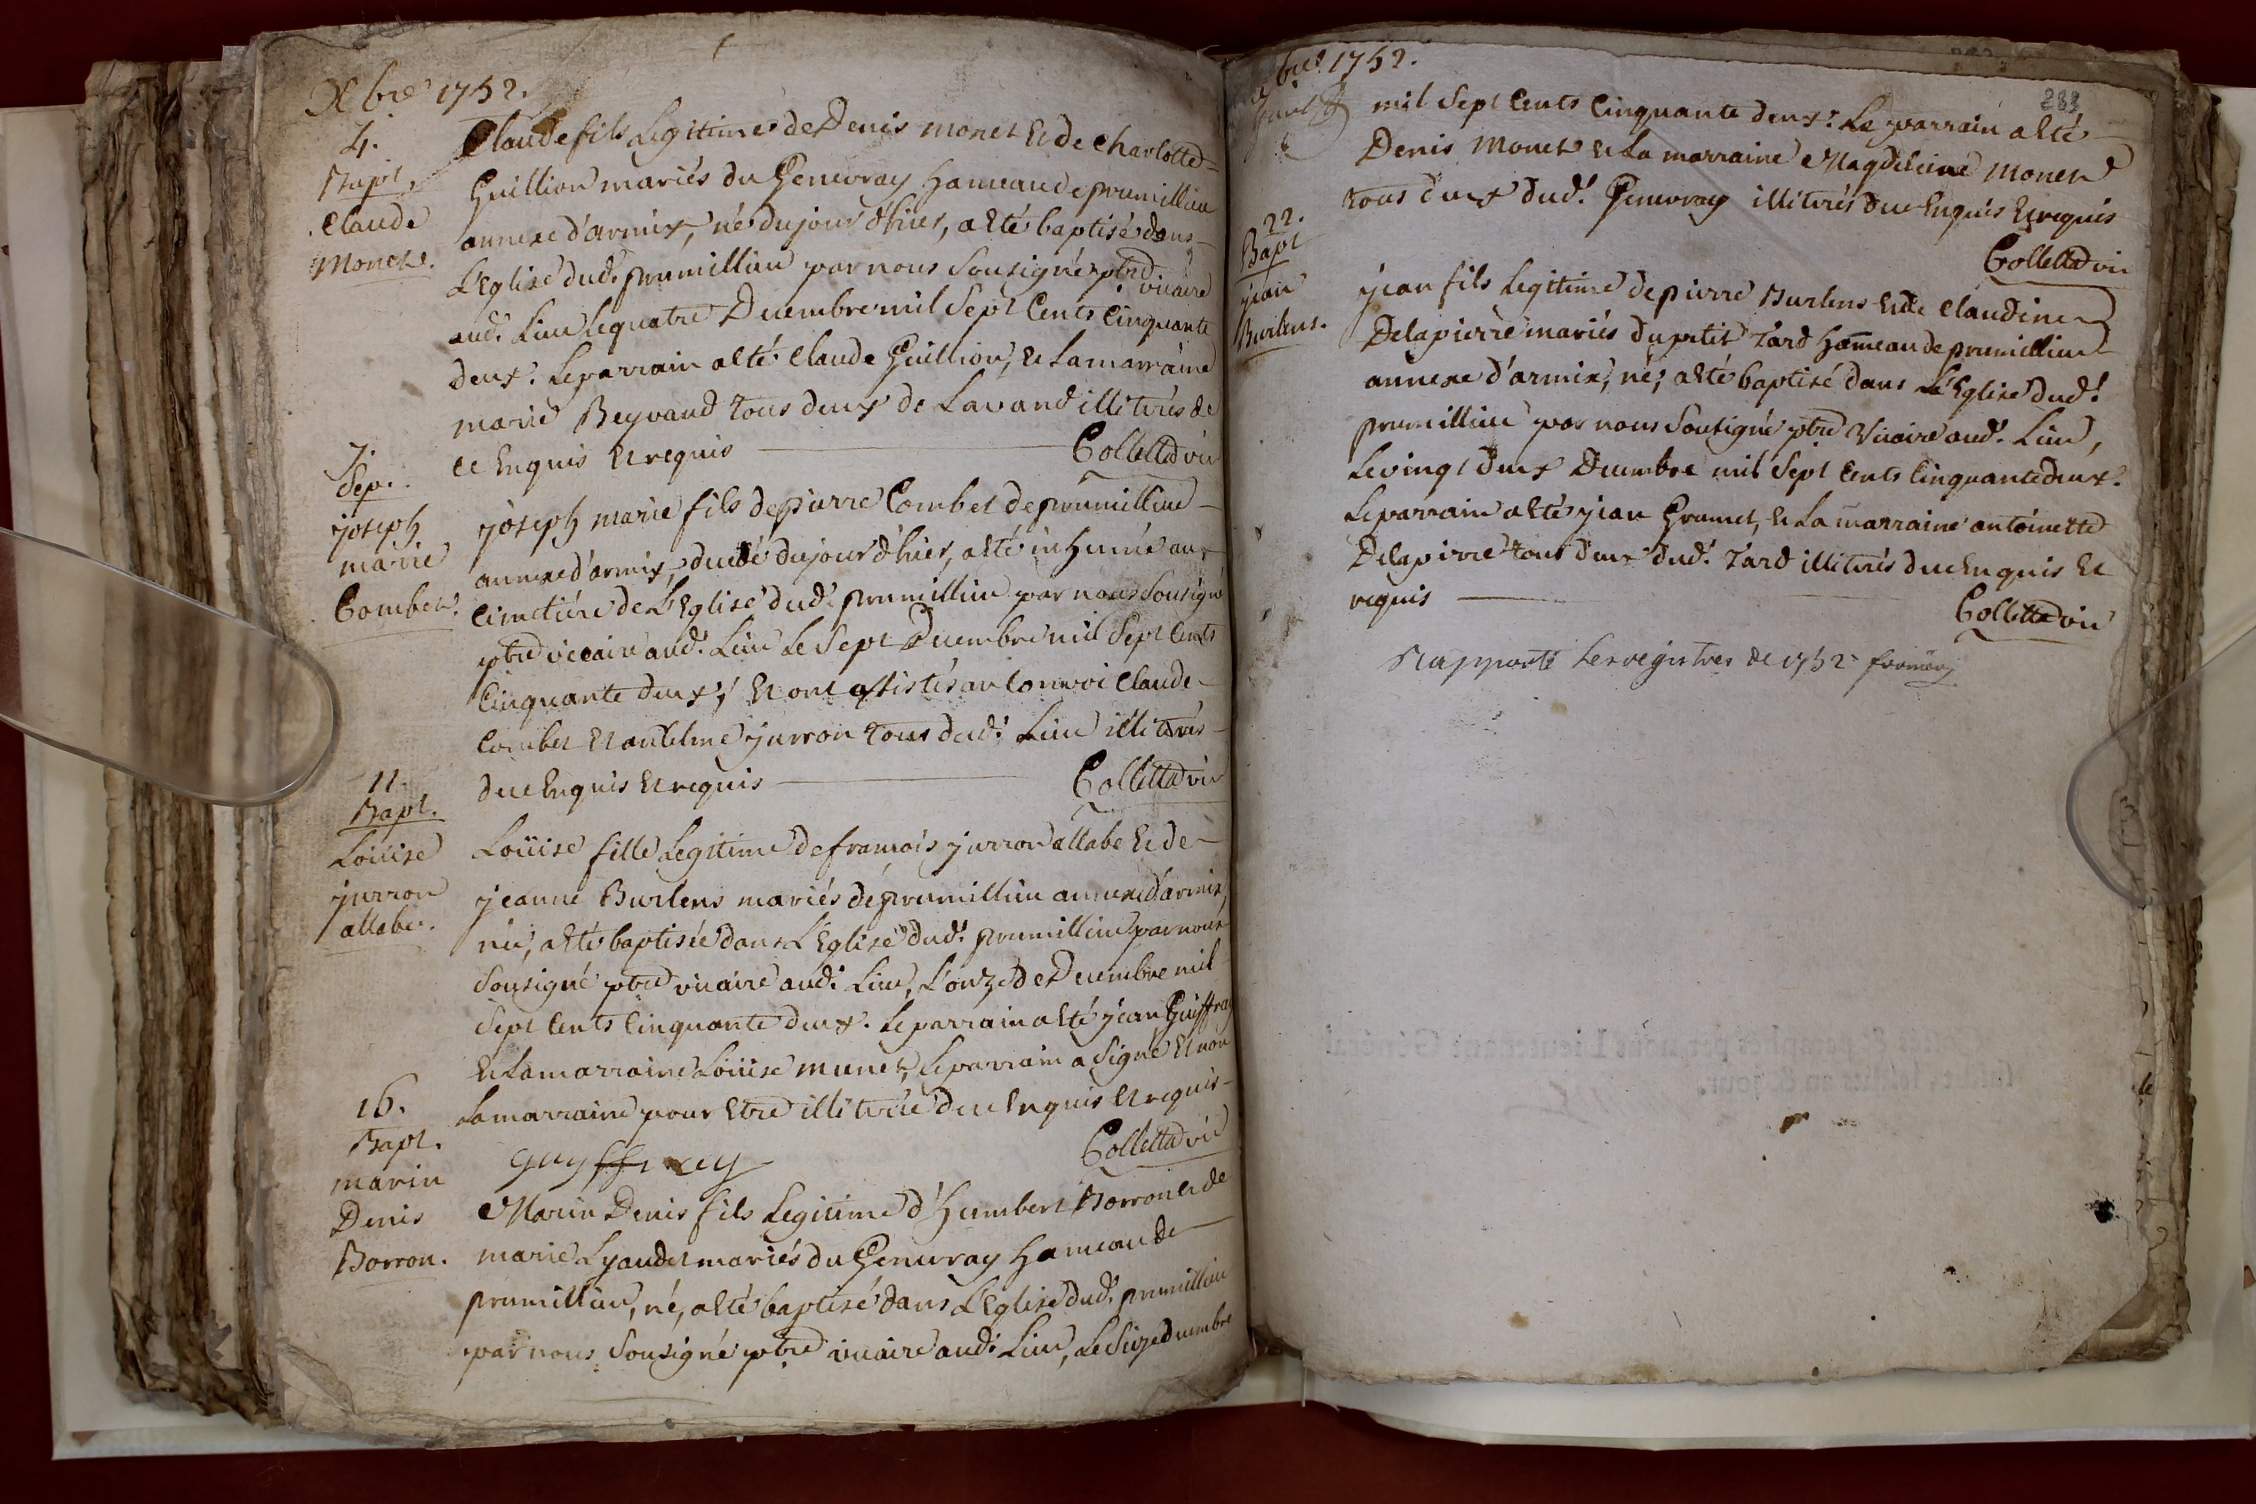 Xbre 1752.
4.
Bapt.
Claude
Monet.
Claude fils Legitime de Denis monet et de charlotte
Guillion mariés du Genevray hameau de prumillieu
annexe d'armix, né du jour d'hier, a eté baptisé dans
L'Eglise dud. prumillieu par nous Sousigné ptre vicaire
aud. Lieu le quatre Decembre mil Sept Cents Cinquante
deux. Le parrain a eté Claude Guillion, et La marraine
marie Beyvaud tous deux de Lavand illiterés de
ce Enquis et requis Collettaz vic
7.
Sep.
joseph
marie
Combet.
joseph marie fils de pierre Combet de prumillieu
annexe d'armix, decedé du jour d'hier, a eté inhumé au
Cimetiere de L'Eglise dud. prumillieu par nous Sousigné
ptre vicaire aud. Lieu Le Sept Decembre mil Sept Cents
Cinquante deux; et ont assistés au Convoi Claude
Combet et antelme jurron tous dud. Lieu illiterés
de ce Enquis et requis Collettaz vic
11.
Bapt.
Loüise
jurron
allabe.
Loüise fille Legitime de francois jurron allabe et de
jeanne Burlens mariés de prumillieu annexe d'armix,
née, a eté baptisée dans L'Eglise dud. prumillieu par nous
Sousigné ptre vicaire aud. Lieu, L'onze de Decembre mil
Sept Cents Cinquante deux. Le parrain a eté jean Guiffray
et La marraine Loüise munet, Le parrain a Signé et non
La marraine pour etre illiterée de ce Enquis et requis
guyffrey Collettaz vic
16.
Bapt.
marin
Denis
Borron.
Marin Denis fils Legitime d'humbert Borron et de
marie Lyaudet mariés du Genevray hameau de
prumillieu, né, a eté baptisé dans L'Eglise dud. prumillieu
par nous Sousigné ptre vicaire aud. Lieu, Le Seize decembre
bre 1752.
283
mil Sept Cents Cinquante deux. Le parrain a eté
Denis Monet et La marraine Magdeleine Monet
tous deux dud. Genevray illiterés de ce Enquis et requis
Collettaz vic
22.
Bapt
jean
Burlens.
jean fils Legitime de pierre Burlens et de Claudine
Delapierre mariés du petit Tard hameau de prumillieu
annexe d'armix, né, a eté baptisé dans L'Eglise dud.
prumillieu par nous Sousigné ptre vicaire aud. Lieu,
Le vingt deux Decembre mil Sept Cents Cinquante deux.
Le parrain a eté jean Gramet, et La marraine antoinette
Delapierre tous deux dud. Tard illiterés de ce Enquis et
requis Collettaz vic
Rapporté Les registres de 1752